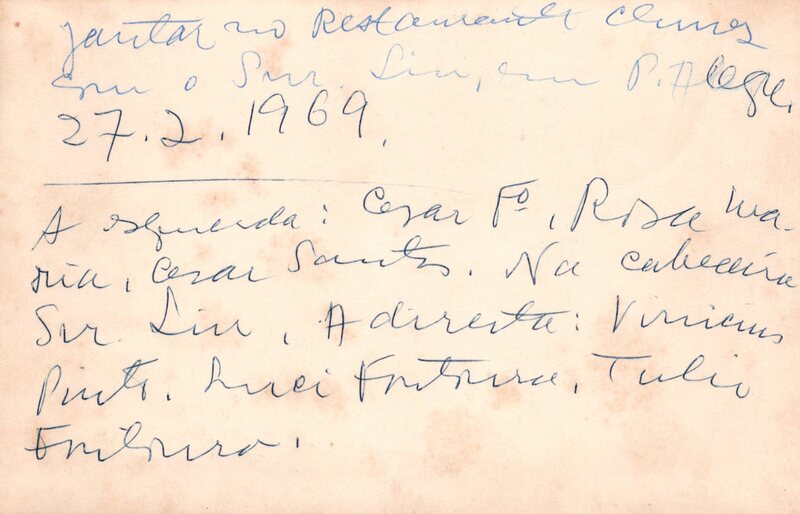 Jantar no Restaurante Chinez
com o Snr. Liu, em P. Alegre,
27.2.1969.
A esquerda: Cezar Fº, Rosa Ma-
ria, Cezar Santos. Na cabeceira
Snr. Liu, A direita: Vinicius
Pinto. Luci Fontoura, Tulio
Fontoura.